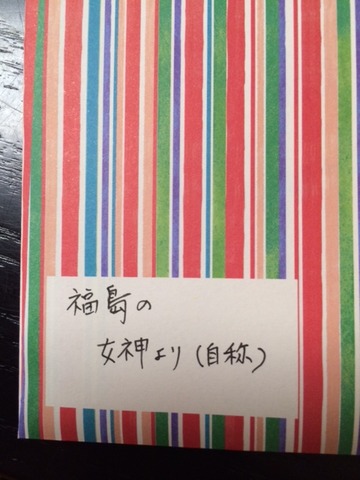 福島の
女神より（自称）